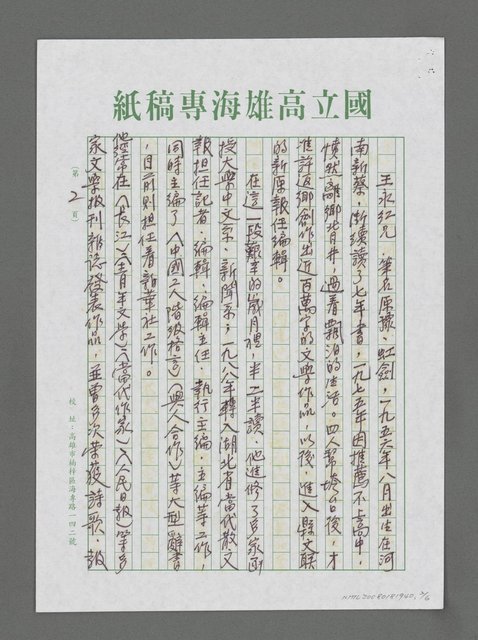 國立高雄海專稿紙
王永红兄,筆名原獴、虹劍,一九五六年八月出生在河
南新蔡,斷續讀了七年書,一九七五年因推薦不上高中,
憤然離鄉背井,過着飄泊的生活。四人幫垮台後,才
准許返鄉創作出近百萬字的文學作品,以後,進入縣文聯
的新原報任編輯。
在這一段艱辛的歲月裡,半工半讀,他進修了自家函
授大學中文系、新聞系;一九八八年轉入湖北省當代散文
報担任記者、編輯、編輯主任、執行主編、主編等工作,
同時主編了《中國工人階級格言》《與人合作》等大型辭書
,目前則担任着新華社工作。
他經常在《長江》《青年文學》《當代作家》《人民日報》等多
家文藝报刊雜誌發表作品,並曾多次榮获詩歌、報
(第2頁)
校址:高雄市楠梓區海專路一四二號
NMTL20080181940, 2/6